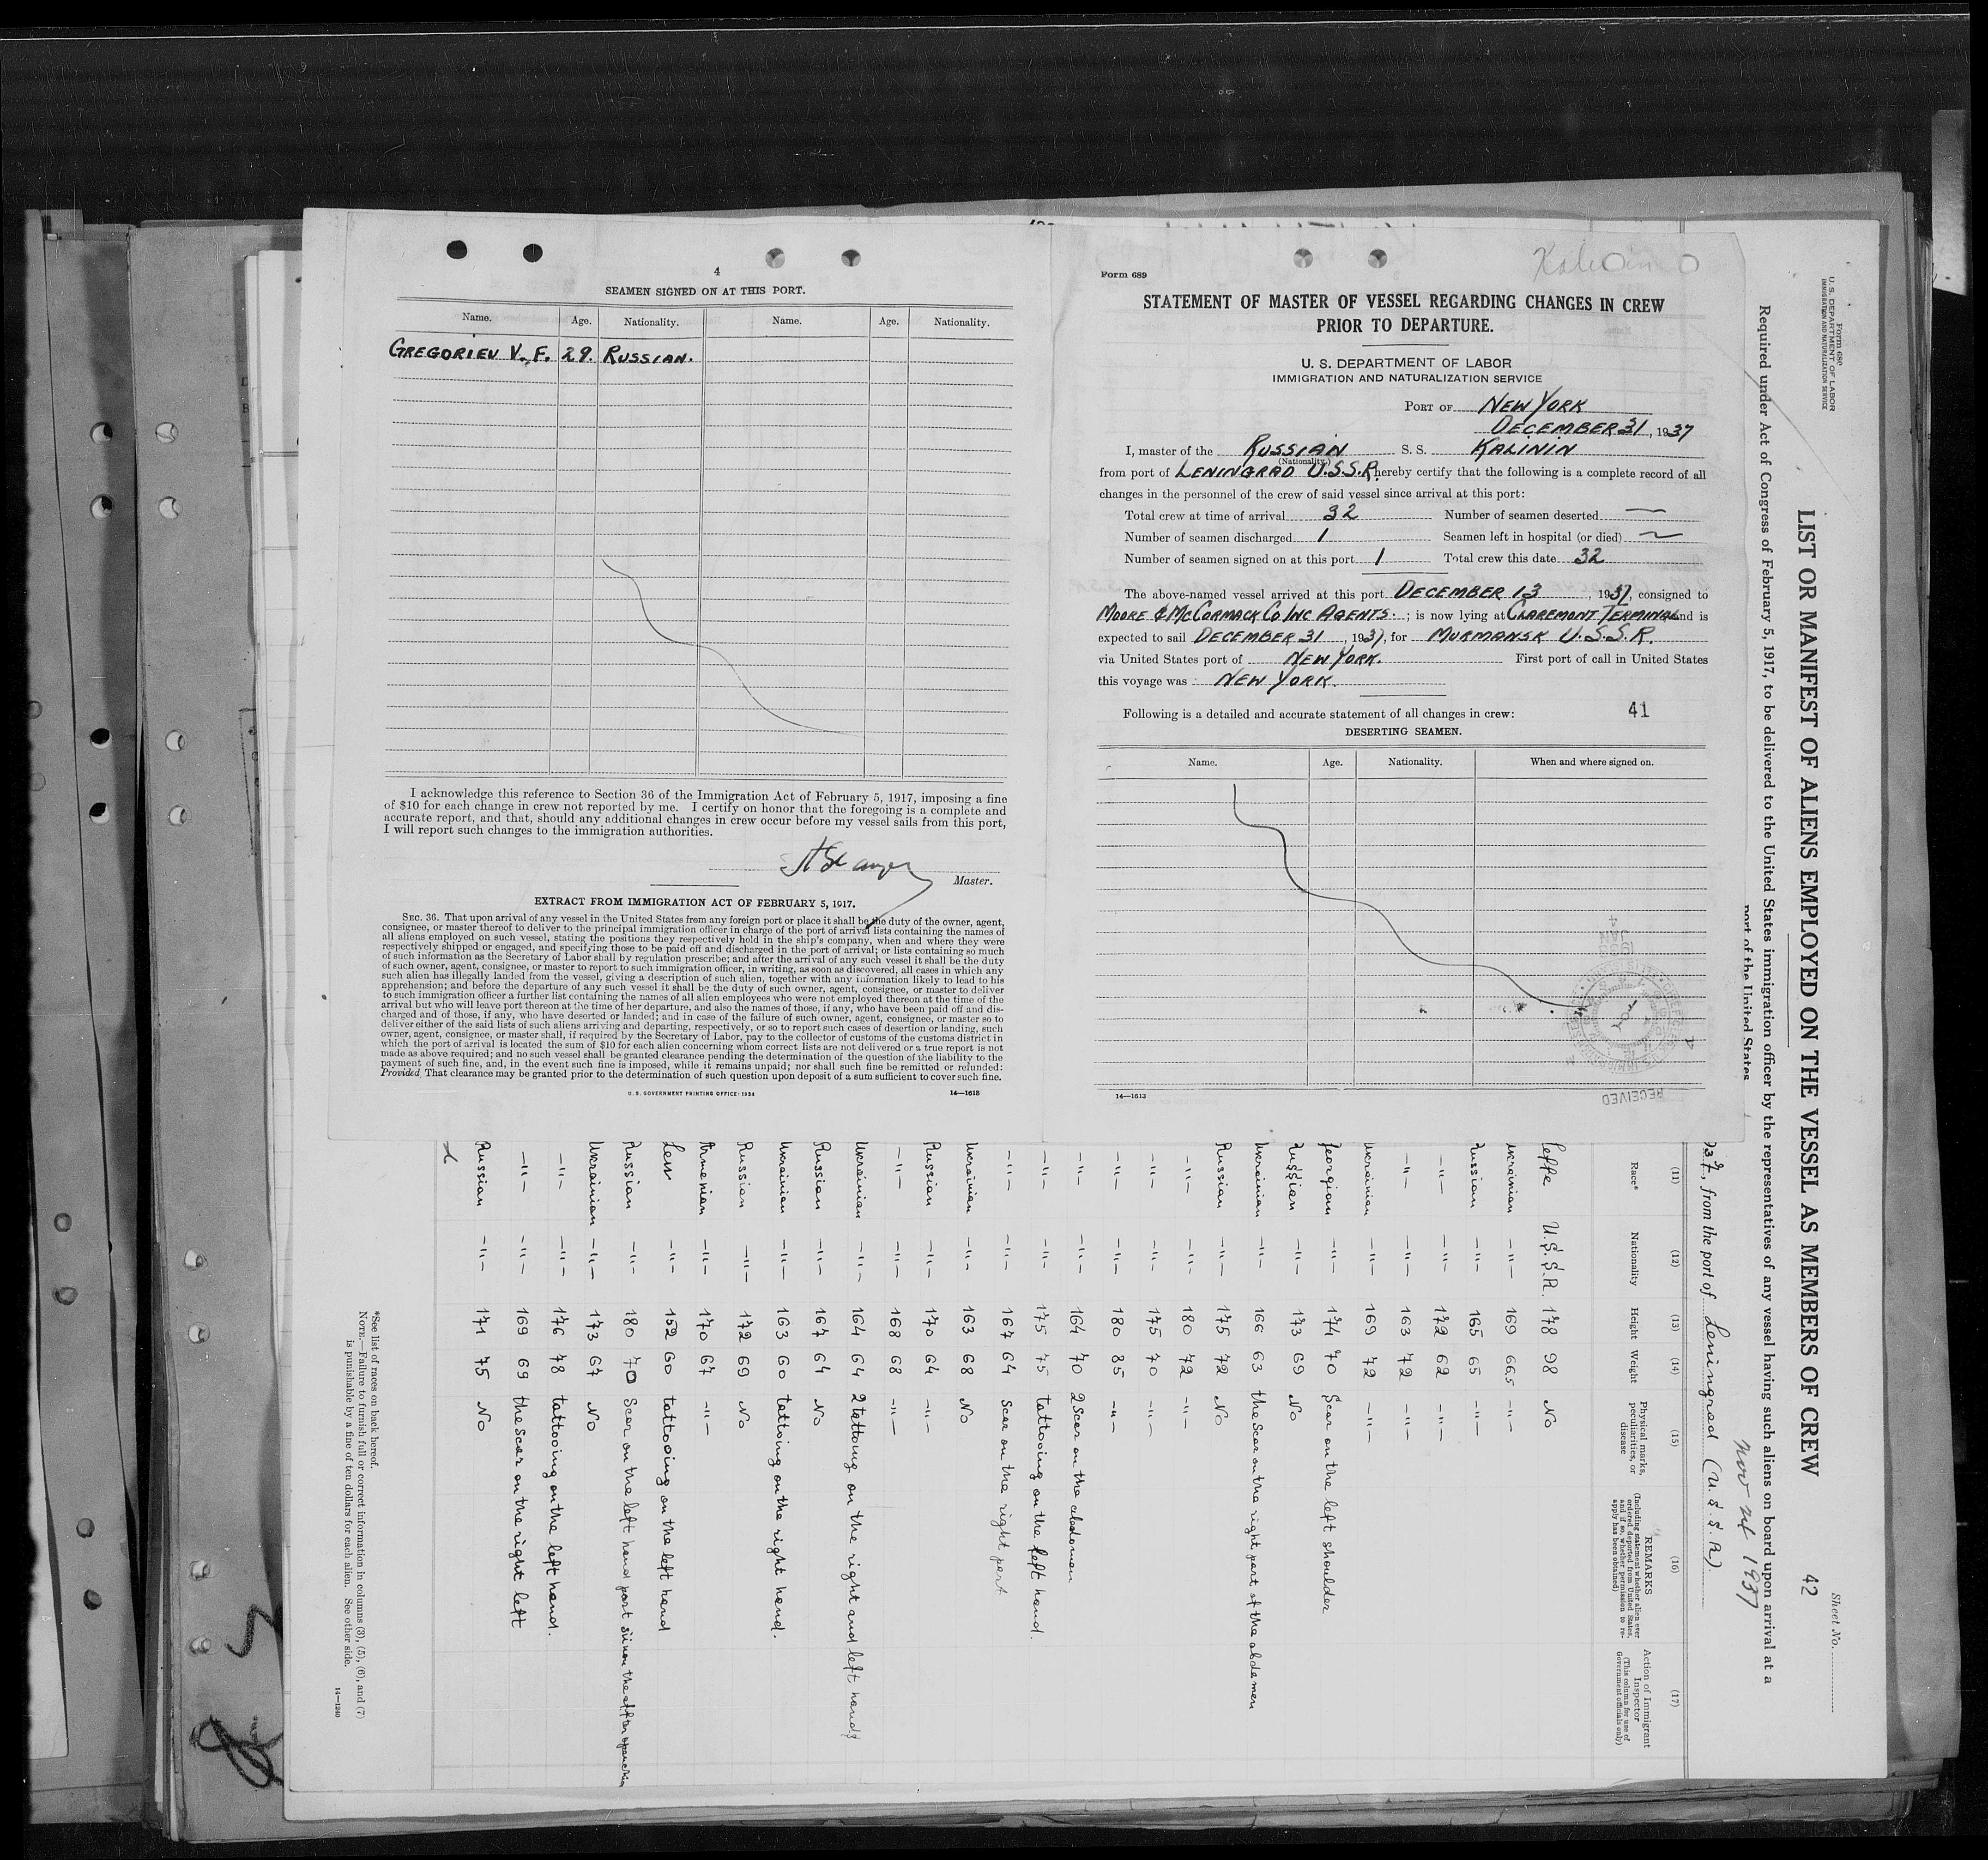 4
SEAMEN SIGNED ON AT THIS PORT.
Name. Age. Nationality. Name. Age. Nationality.
GREGORIEV V. F. 29. RUSSIAN.
I acknowledge this reference to Section 36 of the Immigration Act of February 5, 1917, imposing a fine
of $10 for each change in crew not reported by me. I certify on honor that the foregoing is a complete and
accurate report, and that, should any additional changes in crew occur before my vessel sails from this port,
I will report such changes to the immigration authorities.
Master.
EXTRACT FROM IMMIGRATION ACT OF FEBRUARY 5, 1917.
SEC. 36. That upon arrival of any vessel in the United States from any foreign port or place it shall be the duty of the owner, agent,
consignee, or master thereof to deliver to the principal immigration officer in charge of the port of arrival lists containing the names of
all aliens employed on such vessel, stating the positions they respectively hold in the ship's company, when and where they were
respectively shipped or engaged, and specifying those to be paid off and discharged in the port of arrival; or lists containing so much
of such information as the Secretary of Labor shall by regulation prescribe; and after the arrival of any such vessel it shall be the duty
of such owner, agent, consignee, or master to report to such immigration officer, in writing, as soon as discovered, all cases in which any
such alien has illegally landed from the vessel, giving a description of such alien, together with any information likely to lead to his
apprehension; and before the departure of any such vessel it shall be the duty of such owner, agent, consignee, or master to deliver
to such immigration officer a further list containing the names of all alien employees who were not employed thereon at the time of the
arrival but who will leave port thereon at the time of her departure, and also the names of those, if any, who have been paid off and dis-
charged and of those, if any, who have deserted or landed; and in case of the failure of such owner, agent, consignee, or master so to
deliver either of the said lists of such aliens arriving and departing, respectively, or so to report such cases of desertion or landing, such
owner, agent, consignee, or master shall, if required by the Secretary of Labor, pay to the collector of customs of the customs district in
which the port of arrival is located the sum of $10 for each alien concerning whom correct lists are not delivered or a true report is not
made as above required; and no such vessel shall be granted clearance pending the determination of the question of the liability to the
payment of such fine, and, in the event such fine is imposed, while it remains unpaid; nor shall such fine be remitted or refunded:
Provided, That clearance may be granted prior to the determination of such question upon deposit of a sum sufficient to cover such fine.
U. S. GOVERNMENT PRINTING OFFICE: 1934 14—1613
Form 689
STATEMENT OF MASTER OF VESSEL REGARDING CHANGES IN CREW
PRIOR TO DEPARTURE.
U. S. DEPARTMENT OF LABOR
IMMIGRATION AND NATURALIZATION SERVICE
PORT OF NEW YORK
DECEMBER 31, 1937
I, master of the RUSSIAN S. S. KALININ
(Nationality.)
from port of LENINGRAD U.S.S.R. hereby certify that the following is a complete record of all
changes in the personnel of the crew of said vessel since arrival at this port:
Total crew at time of arrival 32 Number of seamen deserted —
Number of seamen discharged 1 Seamen left in hospital (or died) ~
Number of seamen signed on at this port 1 Total crew this date 32
The above-named vessel arrived at this port DECEMBER 13, 1937, consigned to
MOORE & MCCORMACK CO INC AGENTS.; is now lying at CLAREMONT TERMINAL and is
expected to sail DECEMBER 31, 1937, for MURMANSK U.S.S.R.
via United States port of NEW YORK. First port of call in United States
this voyage was NEW YORK.
Following is a detailed and accurate statement of all changes in crew: 41
DESERTING SEAMEN.
Name. Age. Nationality. When and where signed on.
1938 JAN 4
RECEIVED
14—1613
Form 680
U. S. DEPARTMENT OF LABOR
IMMIGRATION AND NATURALIZATION SERVICE
Sheet No.
LIST OR MANIFEST OF ALIENS EMPLOYED ON THE VESSEL AS MEMBERS OF CREW 42
Required under Act of Congress of February 5, 1917, to be delivered to the United States immigration officer by the representatives of any vessel having such aliens on board upon arrival at a
port of the United States
Nov 24 1937
1937, from the port of Leningrad (U.S.S.R).
(1) (12) (13) (14) (15) (16) (17)
Race* Nationality Height Weight Physical marks, peculiarities, or disease REMARKS (Including statement whether alien ever ordered deported from United States, and if so, whether permission to reapply has been obtained) Action of Immigrant Inspector (This column for use of Government officials only)
U.S.S.R. 178 98 No
Ukrainian -"- 169 66,5 -"-
Russian -"- 165 65 -"-
-"- -"- 172 62 -"-
-"- -"- 163 72 -"-
Ukrainian -"- 169 72 -"-
Georgian -"- 174 70 Scar on the left shoulder
Russian -"- 173 69 No
Ukrainian -"- 166 63 the Scar on the right part of the abdomen
Russian -"- 175 72 No
-"- -"- 180 72 -"-
-"- -"- 175 70 -"-
-"- -"- 180 85 -"-
-"- -"- 164 70 2 Scar on the abdomen
-"- -"- 175 75 tattooing on the left hand.
-"- -"- 167 64 Scar on the right part
Ukrainian -"- 163 68 No
Russian -"- 170 64 -"-
-"- -"- 168 68 -"-
Ukrainian -"- 164 64 2 tattoing on the right and left hands
Russian -"- 167 64 No
Ukrainian -"- 163 60 tattoing on the right hand.
Russian -"- 172 69 No
Armenian -"- 170 67 -"-
-"- 152 60 tattooing on the left hand
Russian -"- 180 70 Scar on the left hand part
Ukrainian -"- 173 67 No
-"- -"- 176 78 tattooing on the left hand.
-"- -"- 169 69 the Scar on the right left
Russian -"- 171 75 No
*See list of races on back hereof.
NOTE.—Failure to furnish full or correct information in columns (3), (5), (6), and (7)
is punishable by a fine of ten dollars for each alien. See other side.
14—1240